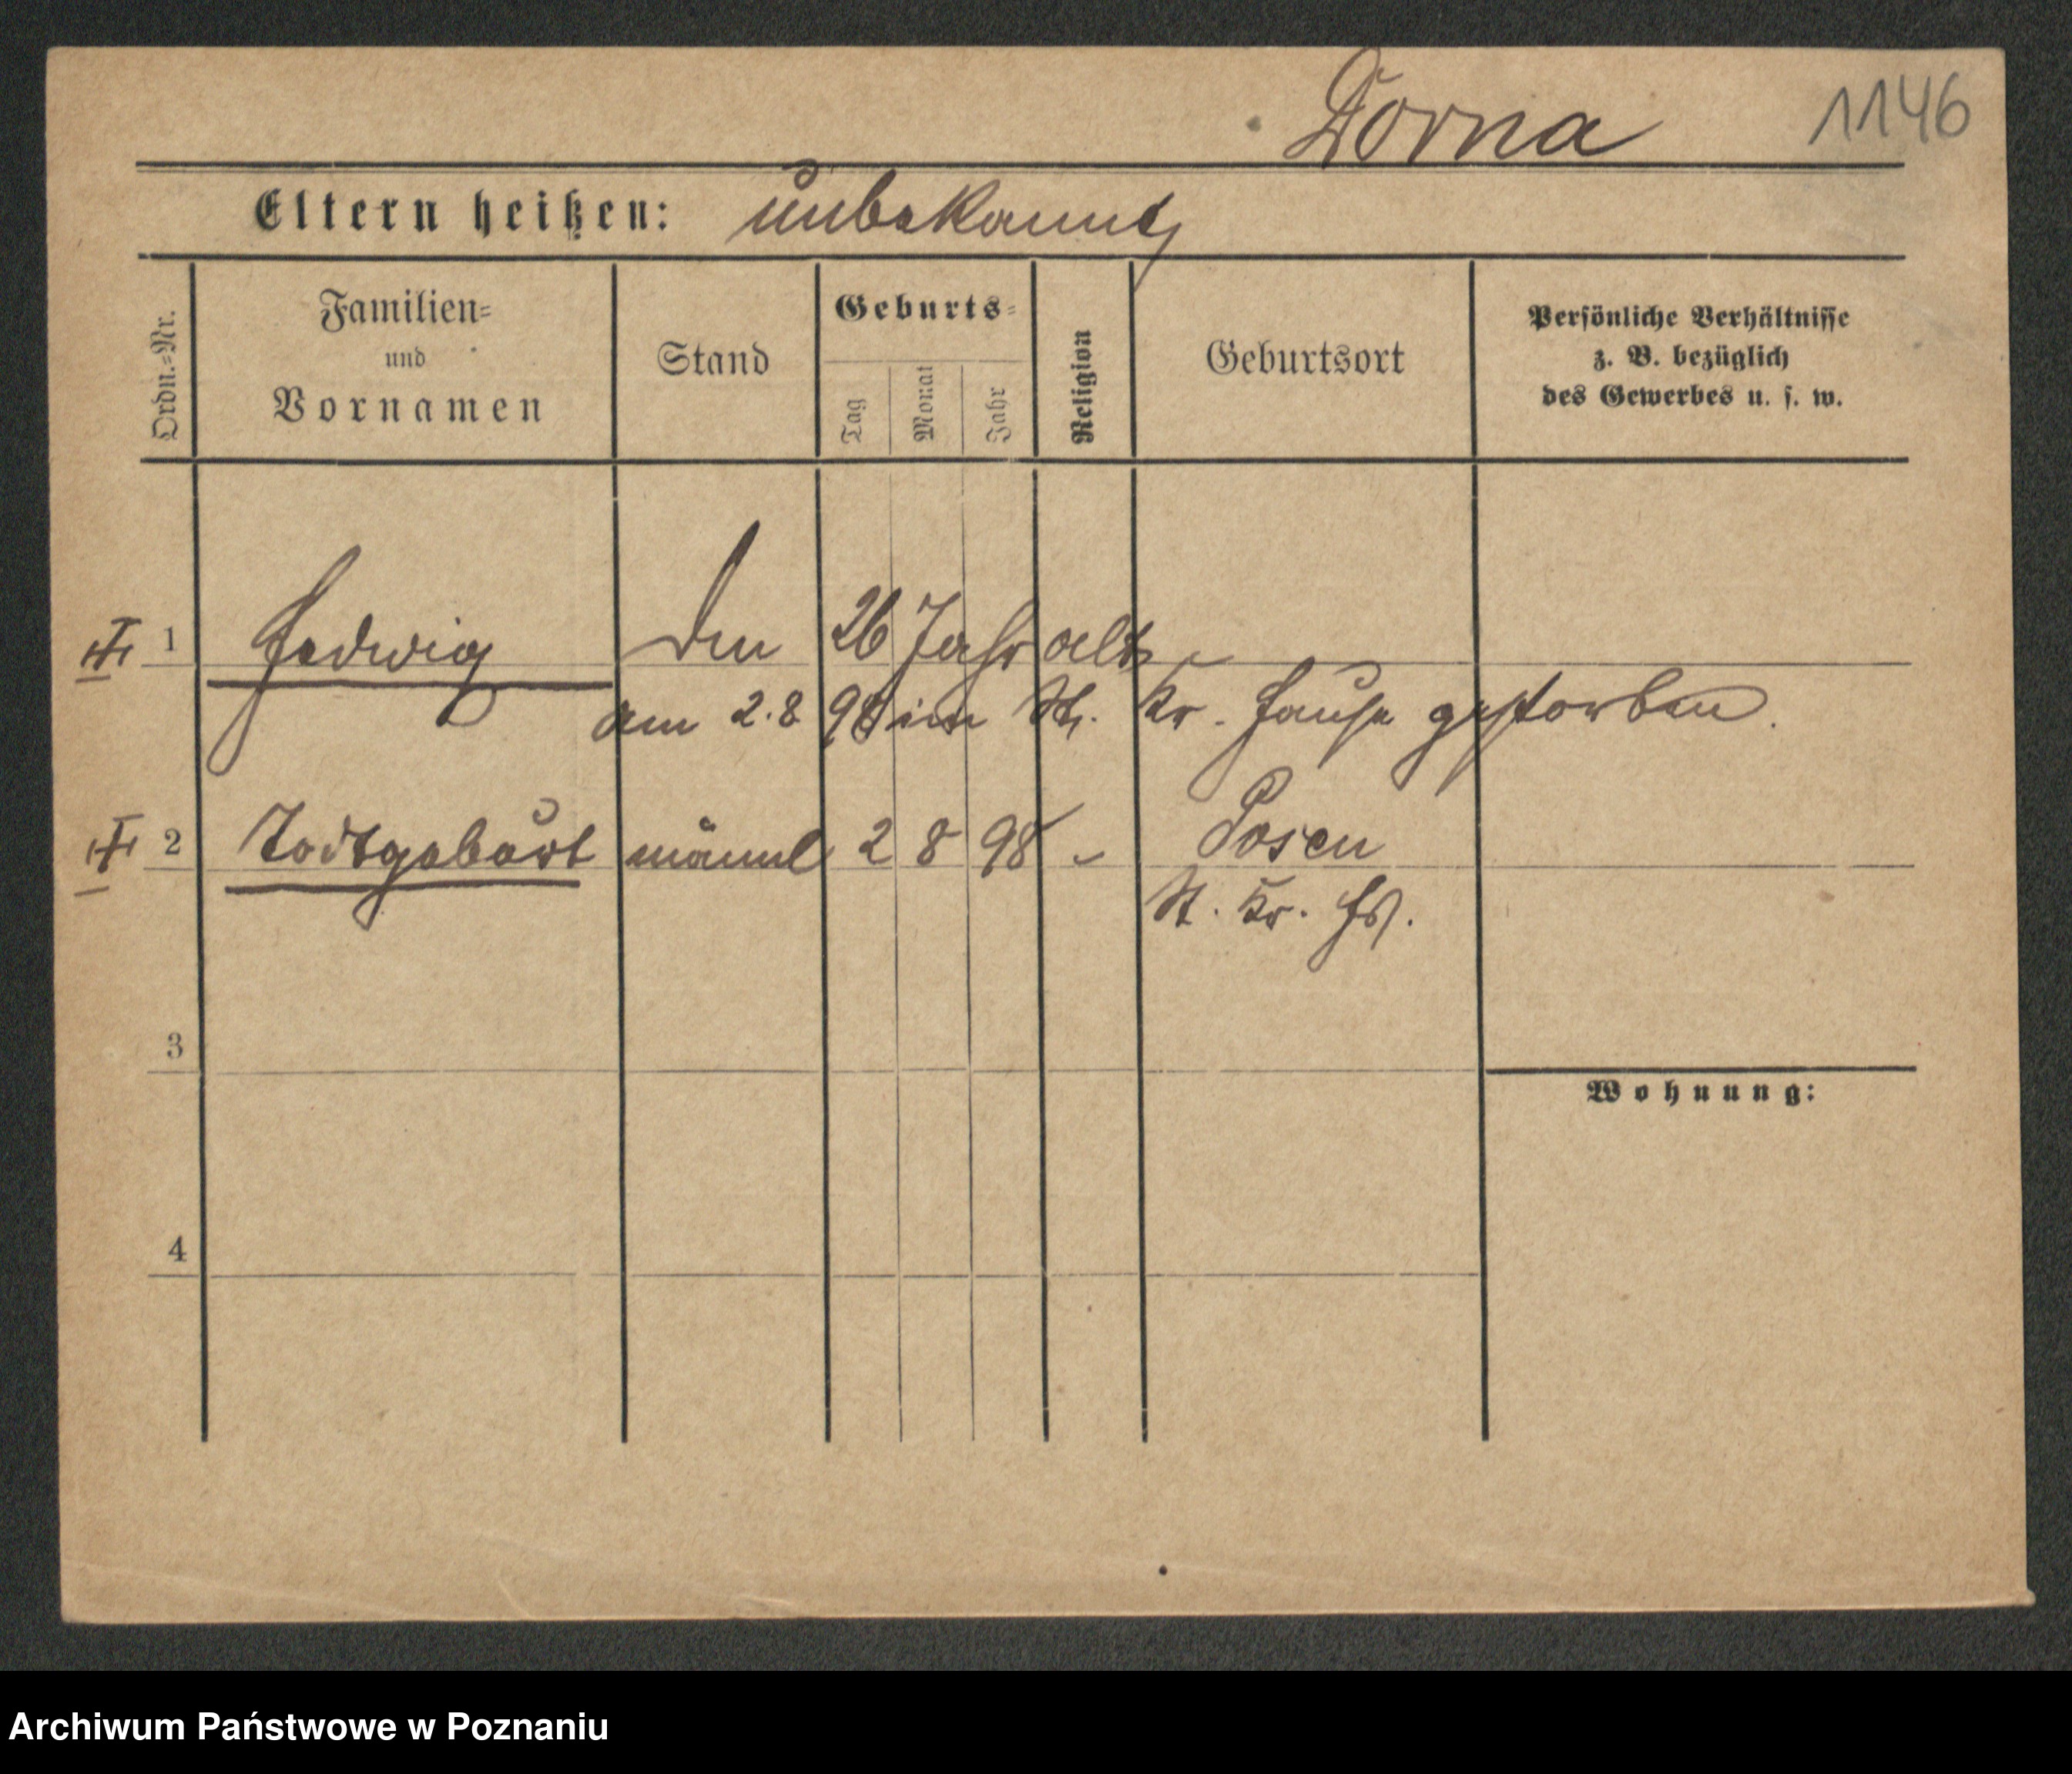 Dorna 1146
Eltern heißen: unbekannt
Ordn.-Nr.
Familien-
und
Vornamen
Stand
Geburts-
Tag
Monat
Jahr
Religion
Geburtsort
Persönliche Verhältnisse
z. B. bezüglich
des Gewerbes u. s. w.
1 Hedwig 26 Jahr alt
am 2.8 98 im St. Kr. Hause gestorben.
2 Todtgeburt männl 2 8 98 - Posen
St. Kr. Hs.
3
Wohnung:
4
Archiwum Państwowe w Poznaniu